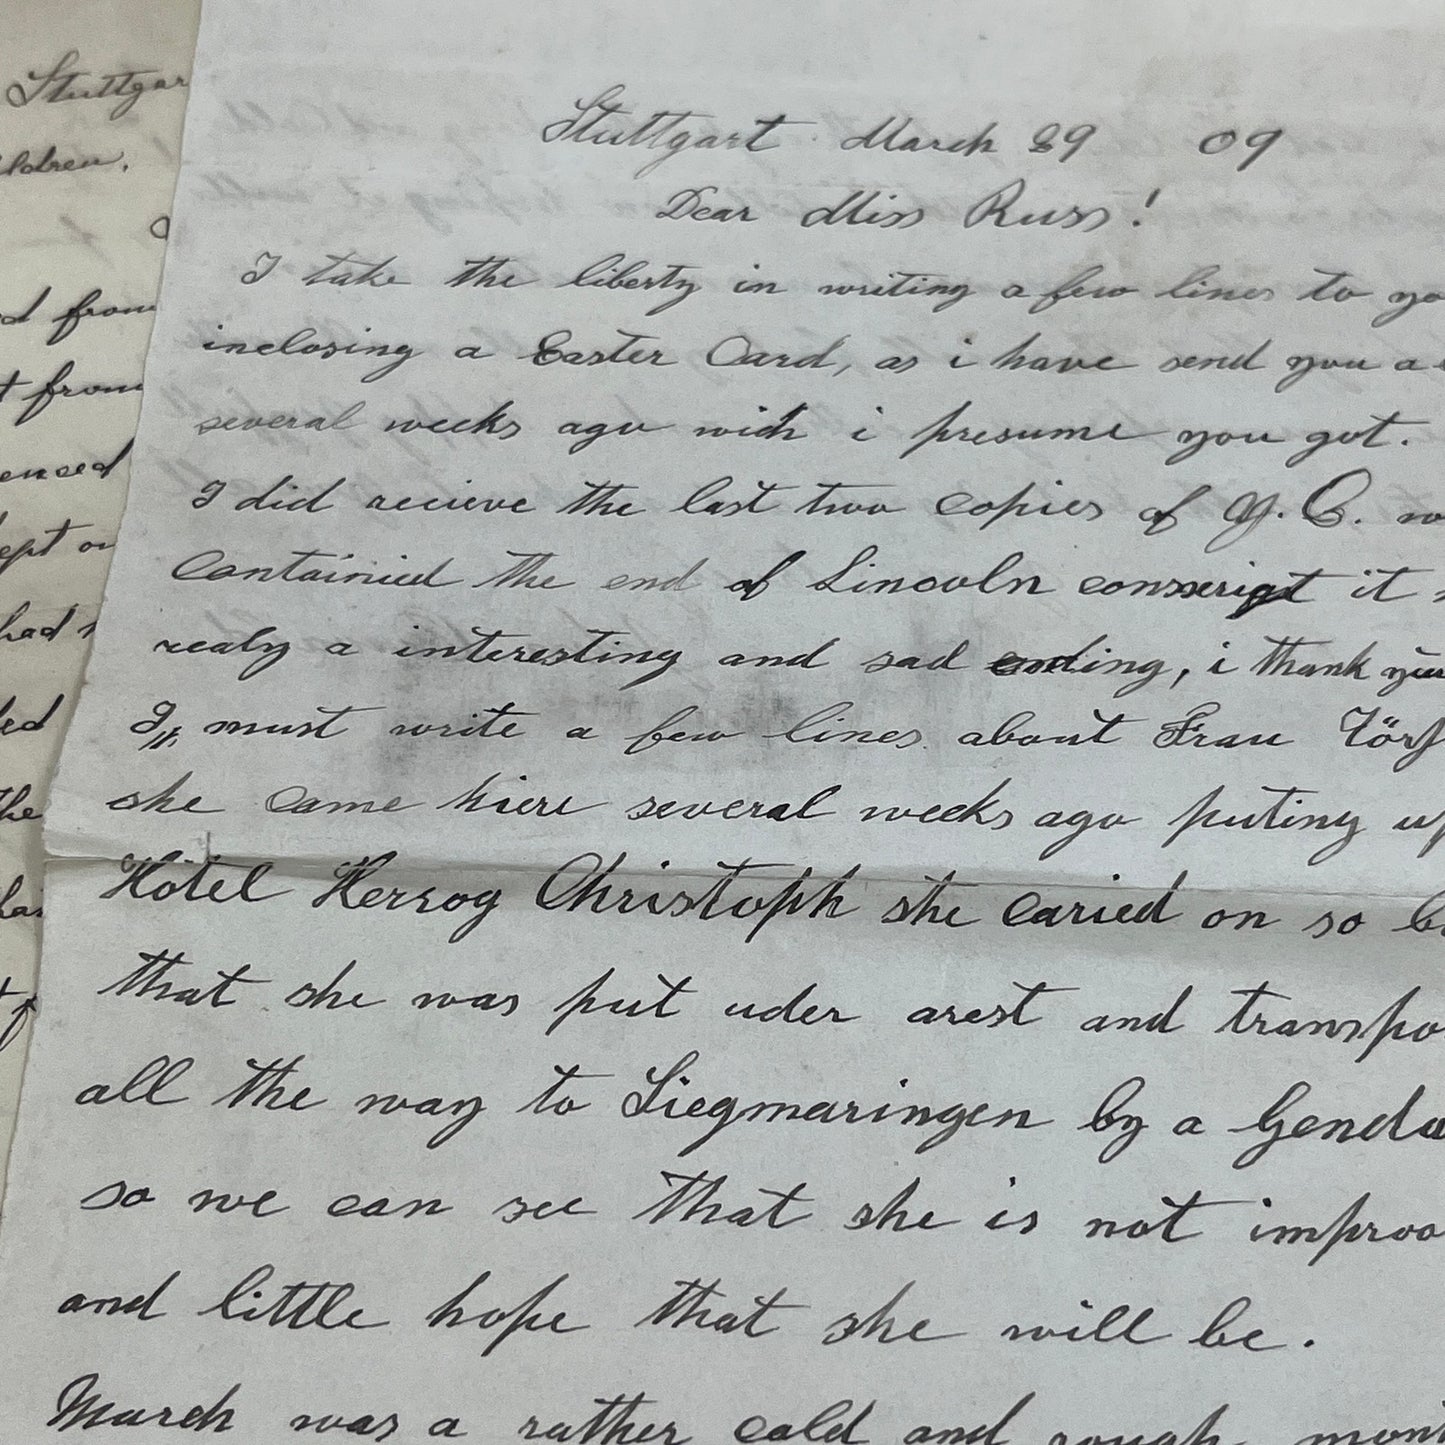 Stuttgart
ldren.
d from
t from
enced
ept on
had
ted
the
has
Stuttgart March 29 09
Dear Miss Russ!
I take the liberty in writing a few lines to yo
inclosing a Easter Card, as i have send you a
several weeks ago wich i presume you got.
I did recieve the last two copies of Y. C. w
Containied the end of Lincoln conscript it
realy a interesting and sad ending, i thank you
I must write a few lines about Frau Törf
she came hiere several weeks ago puting up
Hotel Herzog Christoph she caried on so b
that she was put uder arest and transpo
all the way to Siegmaringen by a Genda
so we can see that she is not improo
and little hope that she will be.
March was a rather cold and rough mont